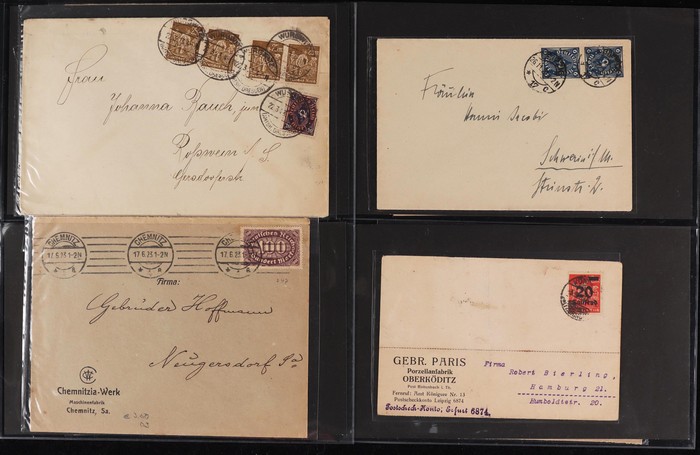 WURZEN
Frau
Johanna Rauch jun
Roßwein i. S.
Gersdorferstr
Fräulein
Hanni Jacobi
Schwerin i/M.
Steinstr. 2.
CHEMNITZ
17.6.23.1-2N
CHEMNITZ
17.6.23.1-2N
CHEMNITZ
17.6.23.1-2N
Deutsches Reich
100
Hundert Mark
Firma:
Gebrüder Hoffmann
Neugersdorf Sa
Chemnitzia-Werk
Maschinenfabrik
Chemnitz, Sa.
20
GEBR. PARIS
Porzellanfabrik
OBERKÖDITZ
Post Rottenbach i. Th.
Fernruf: Amt Königsee Nr. 13
Postscheckkonto Leipzig 6874
Postscheck-Konto, Erfurt 6874.
Firma
Robert Bierling,
Hamburg 21.
Humboldtstr. 20.